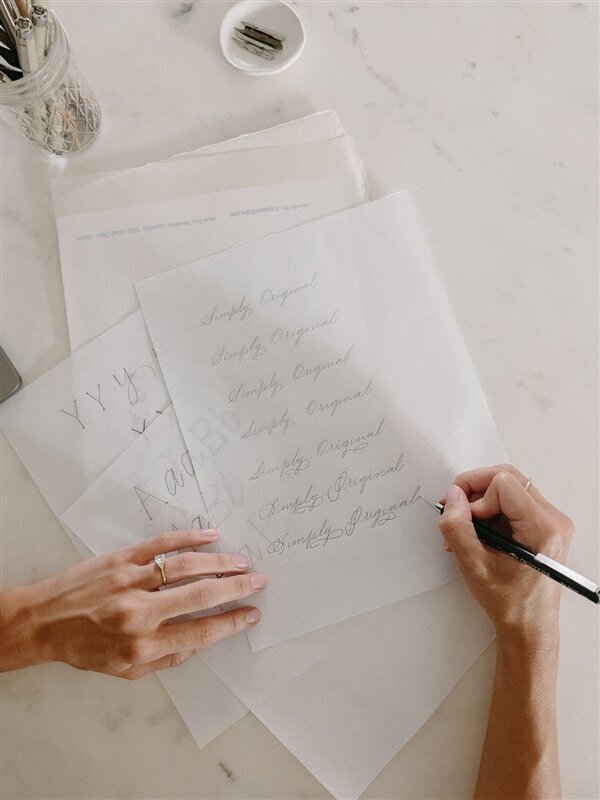 Simply Original
Simply Original
Simply Original
Simply Original
Simply Original
Simply Original
Simply Original
Y Y y
A a a B b